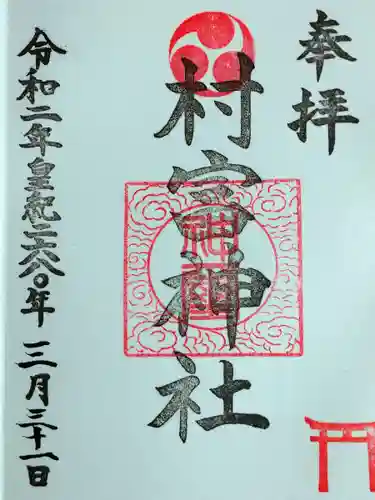 奉拝
村宮神社
令和二年皇紀二六八〇年一二月三十一日